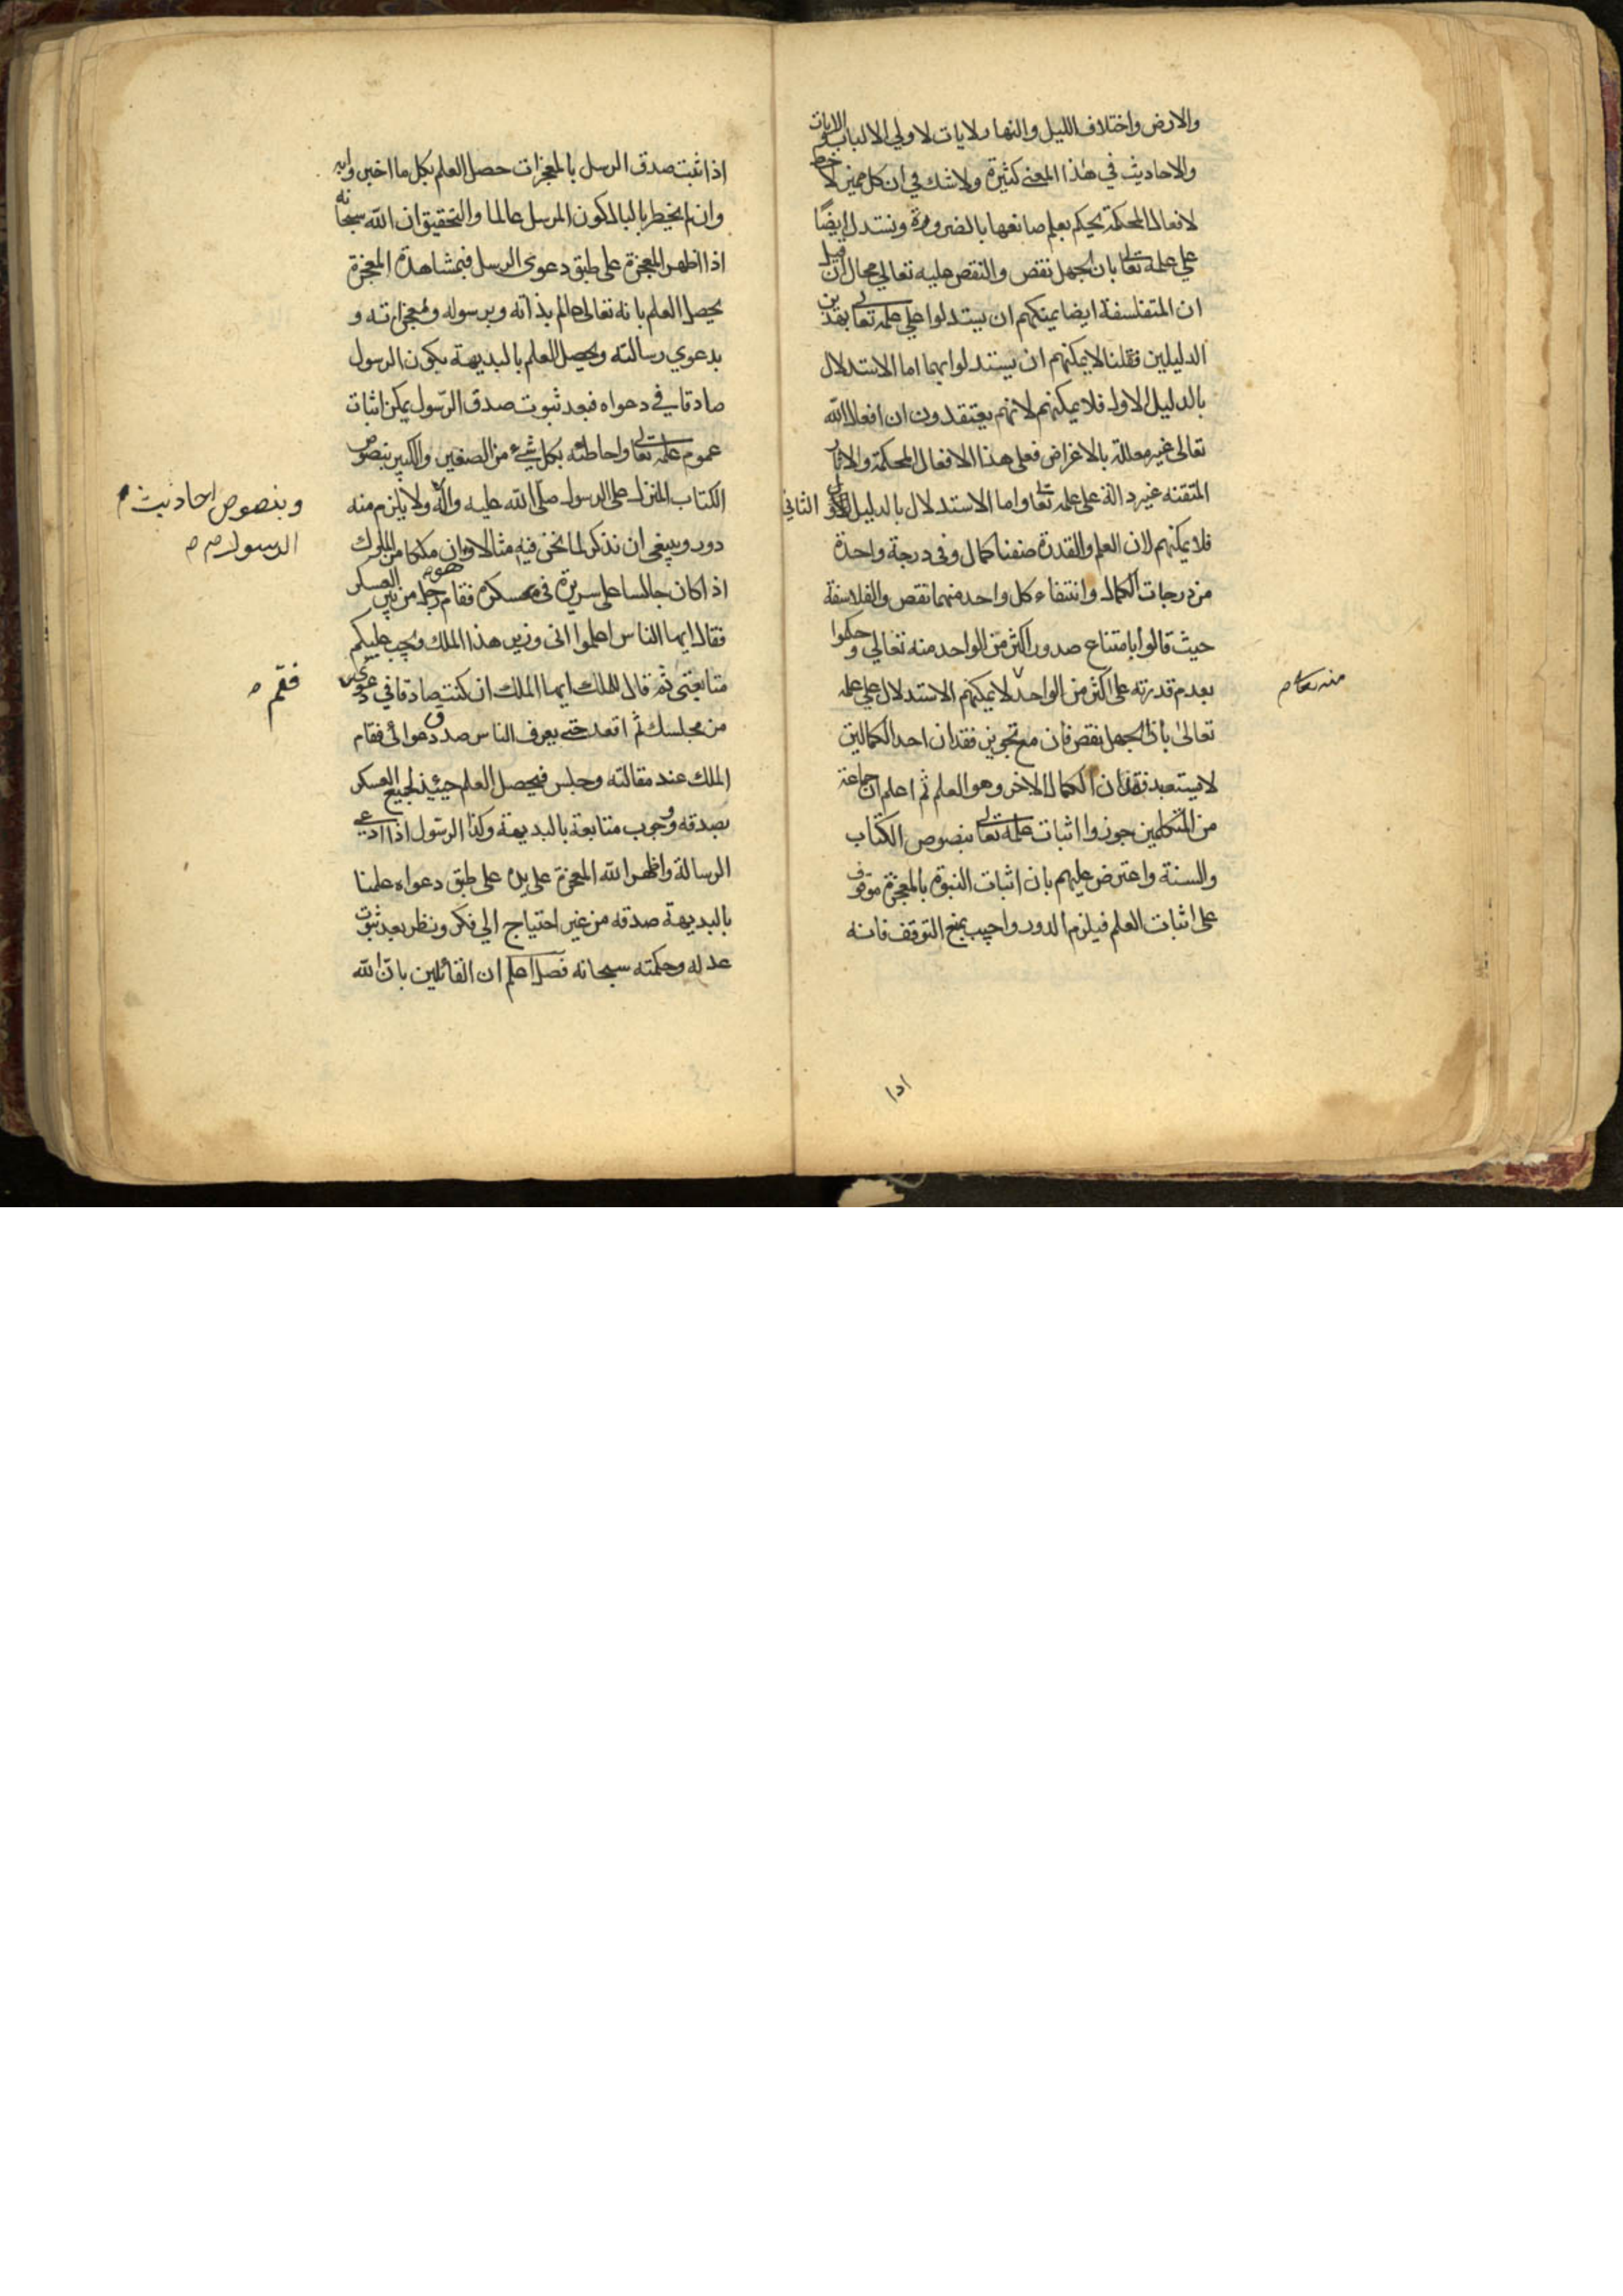 والارض واختلاف الليل والنهار لايات لاولي الالباب والايات
والاحاديث في هذا المعني كثيرة ولاشك في ان كل مميز لاحظ
لافعالها المحكمة يحكم بعلم صانعها بالضرورة ونستدل ايضًا
علي علمه تعالى بان الجهل نقص والنقص عليه تعالي محال فان قيل
ان المتفلسفة ايضا يمكنهم ان يستدلوا علي علمه تعالى بهذين
الدليلين فقلنا لا يمكنهم ان يستدلوا بهما اما الاستدلال
بالدليل الاول فلا يمكنهم لانهم يعتقدون ان افعال الله
تعالى غير معللة بالاغراض فعلى هذا الافعال المحكمة والاثار
المتقنه غير دالة على علمه تعالى واما الاستدلال بالدليل الثاني
فلا يمكنهم لان العلم والقدرة صفتا كمال وفى درجة واحدة
من درجات الكمال وانتفاء كل واحد منهما نقص والفلاسفة
حيث قالوا بامتناع صدور اكثر من الواحد منه تعالي وحكموا
بعدم قدرته على اكثر من الواحد لا يمكنهم الاستدلال علي علمه
منه تعالى م
تعالى بان الجهل نقص فان مع تجويز فقدان احد الكمالين
لا يستبعد فقدان الكمال الاخر وهو العلم ثم اعلم ان جماعة
من المتكلمين جوزوا اثبات علمه تعالى بنصوص الكتاب
والسنة واعترض عليهم بان اثبات النبوة بالمعجزة موقوف
على اثبات العلم فيلزم الدور واجيب بمنع التوقف فانه
اذا
اذا ثبت صدق الرسل بالمعجزات حصل العلم بكل ما اخبروا به
وان لم يخطر بالبال كون المرسل عالما والتحقيق ان الله سبحانه
اذا اظهر المعجزة على طبق دعوى الرسل فبمشاهدة المعجزة
يحصل العلم بانه تعالى عالم بذاته وبرسوله ومعجزاته و
بدعوي رسالته ويحصل العلم بالبديهة بكون الرسول
صادقا في دعواه فبعد ثبوت صدق الرّسول يمكن اثبات
عموم علمه تعالى واحاطته بكل شيء من الصغير والكبير بنصوص
الكتاب المنزل على الرسول صلّى الله عليه وآله ولا يلزم منه
وبنصوص احاديث م
الرسول ص م
دور وينبغى ان نذكر لما نحن فيه مثالا وهو ان ملكا من الملوك
اذا كان جالسا على سريره فى عسكره فقام رجل من بين العسكر
فقال ايها الناس اعلموا انى وزير هذا الملك ويجب عليكم
متابعتى ثم قال للملك ايها الملك ان كنت صادقا في دعوى
فقم م
من مجلسك ثم اقعد حتى يعرف الناس صدق دعوائى فقام
الملك عند مقالته وجلس فيحصل العلم حينئذ لجميع العسكر
بصدقه ووجوب متابعة بالبديهة وكذا الرسّول اذا ادعى
الرسالة واظهر الله المعجزة على يده على طبق دعواه علمنا
بالبديهة صدقه من غير احتياج الي فكر ونظر بعد ثبوت
عدله وحكمته سبحانه فصل اعلم ان القائلين بان الله